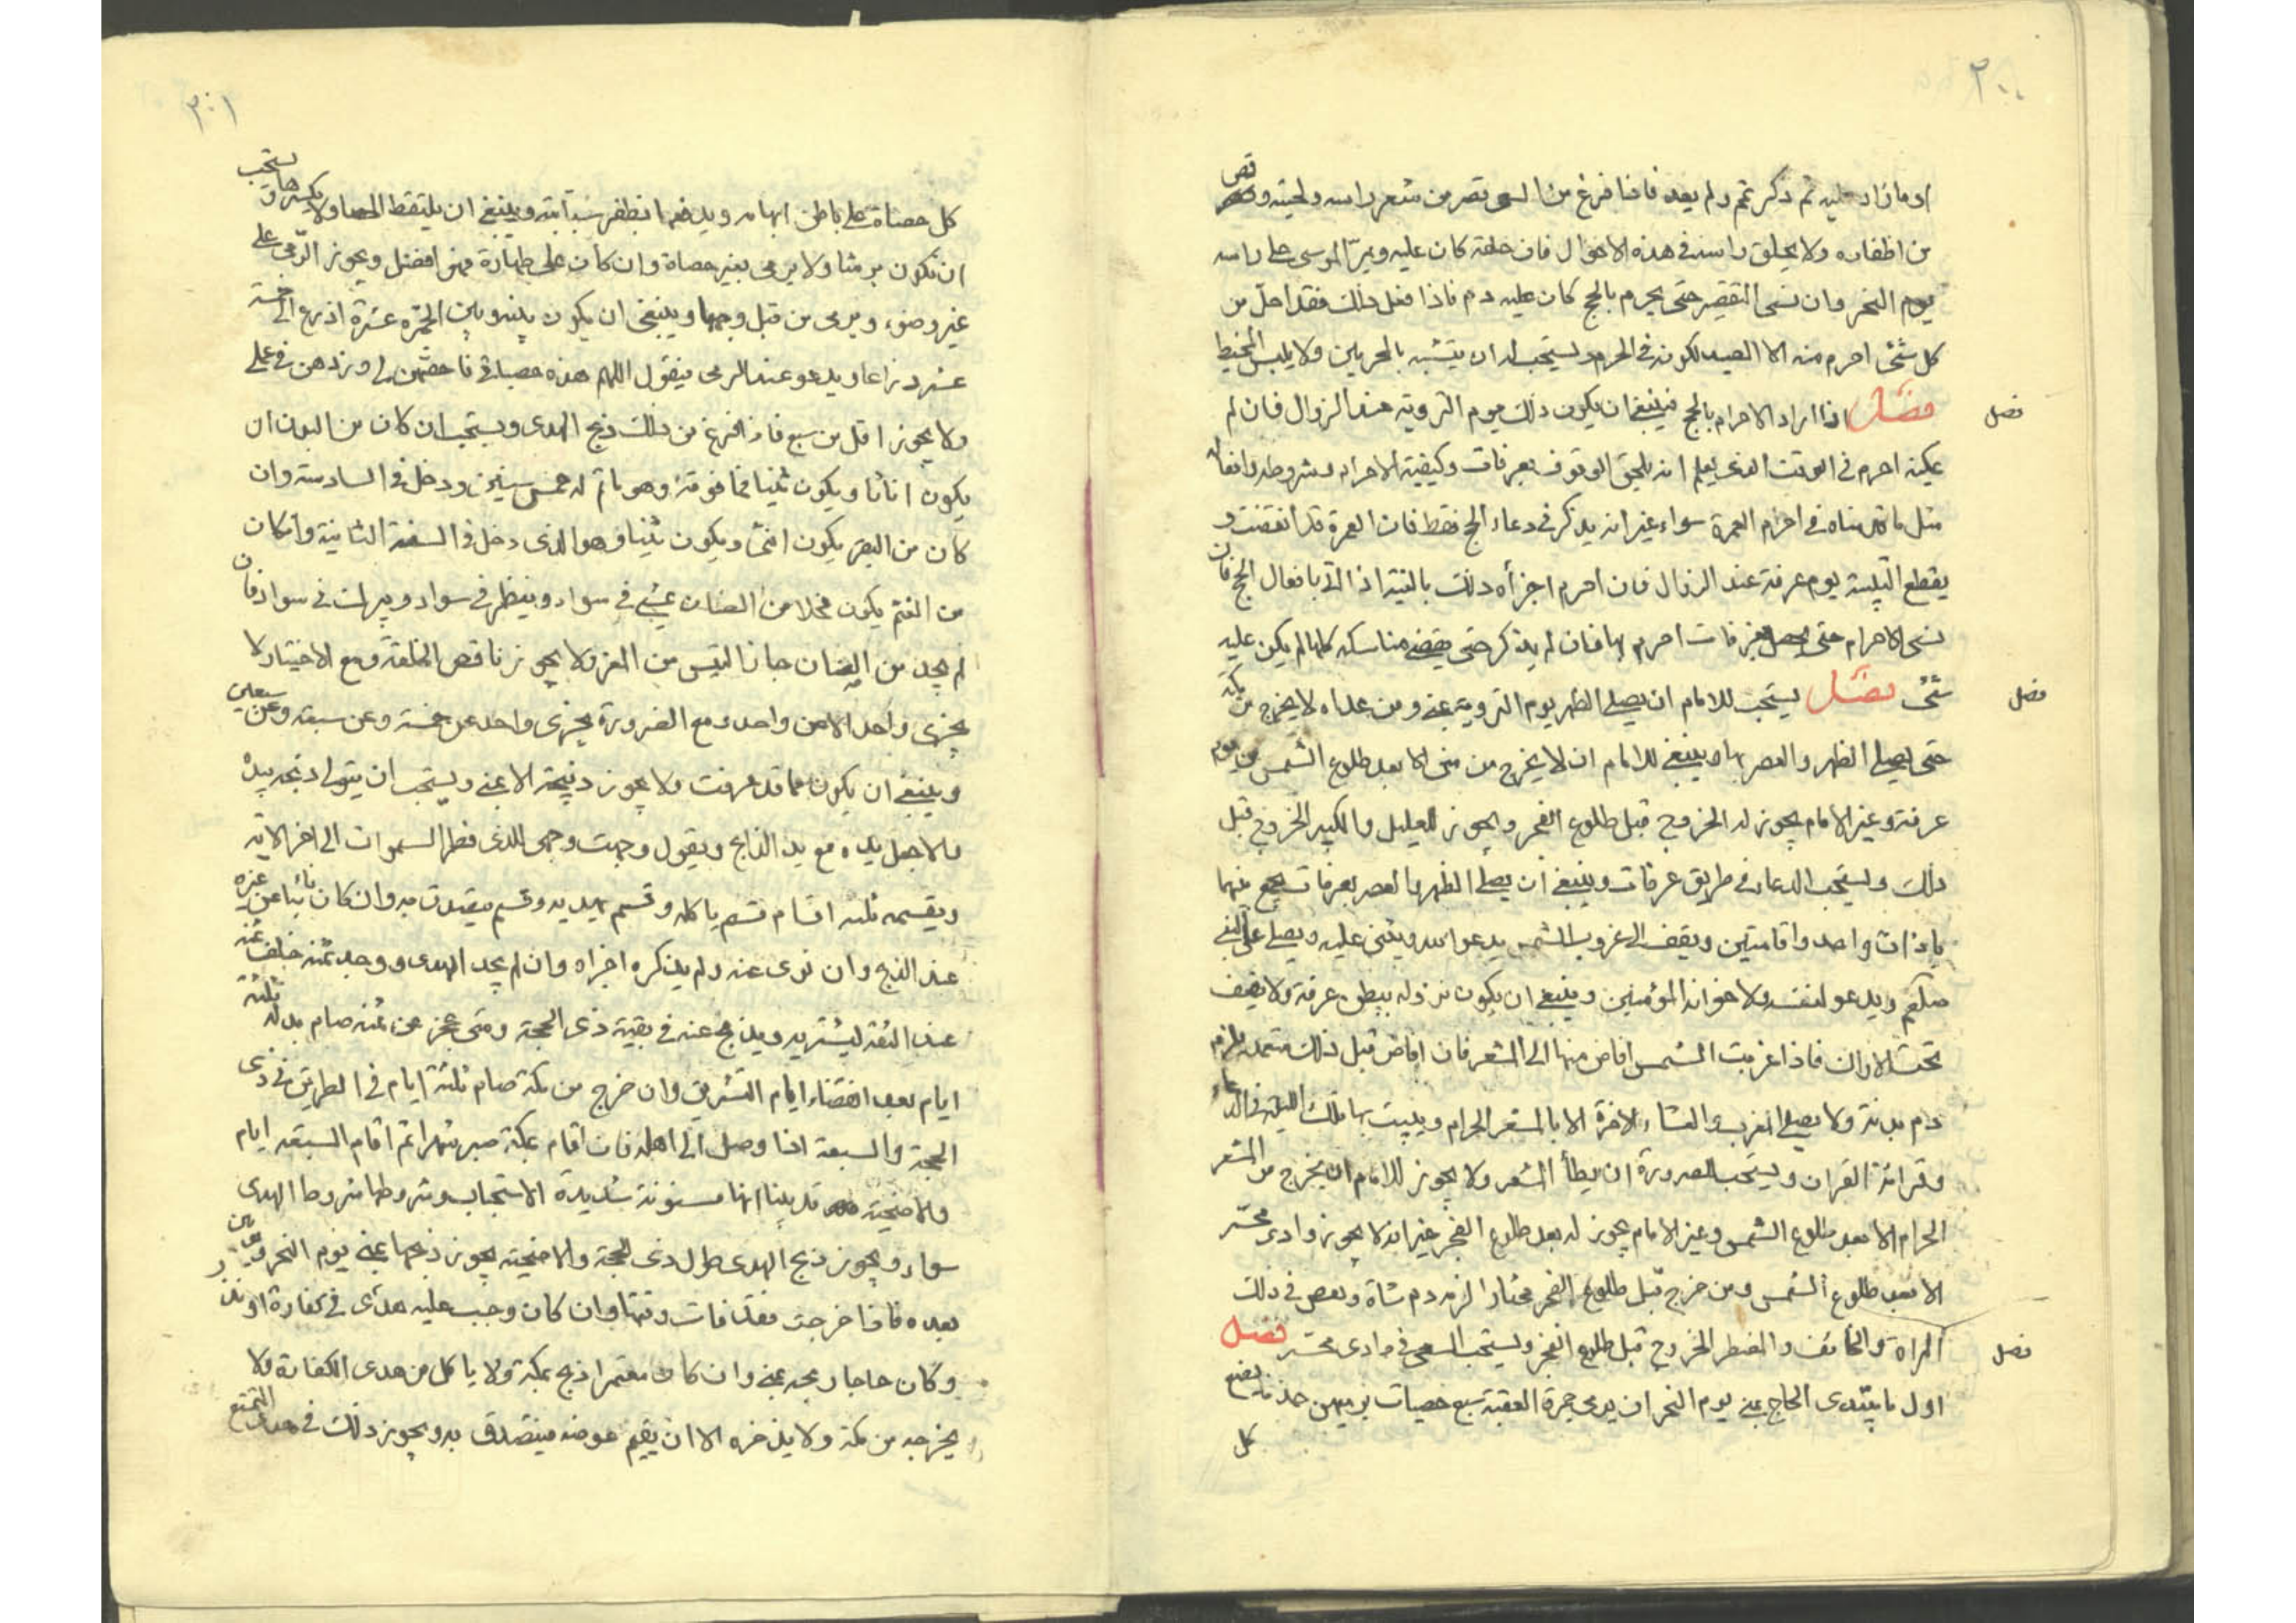 ٣٠٠
او ما زاد عليه ثم ذكر تمم ولم يعد فاذا فرغ من السعى قصر من شعر راسه ولحيته وقص
من اظفاره ولا يحلق راسه فى هذه الاحوال فان حلقه كان عليه ويمرّ الموسى على راسه
يوم النحر وان نسى التقصير حتى يحرم بالحج كان عليه دم فاذا فعل ذلك فقد احلّ من
كل شئ احرم منه الا الصيد لكونه فى الحرم ويستحب له ان يتشبه بالمحرمين ولا يلبس المخيط
فصل اذا اراد الاحرام بالحج فينبغى ان يكون ذلك يوم التروية عند الزوال فان لم
فصل
يمكنه احرم فى الوقت الذى يعلم انه يلحق الوقوف بعرفات وكيفية الاحرام وشروطه وافعاله
مثل ما قدمناه فى احرام العمرة سواء غير انه يذكر فى دعاء الحج فقط فان العمرة قد انقضت و
يقطع التلبية يوم عرفة عند الزوال فان احرم اجزأه ذلك بالنية اذا اتى بافعال الحج فان
نسى الاحرام حتى يحصل بعرفات احرم بها فان لم يذكر حتى يقضى مناسكه كلها لم يكن عليه
شئ فصل يستحب للامام ان يصلى الظهر يوم التروية بمنى ومن عداه لا يخرج من مكة
فصل
حتى يصلى الظهر والعصر بها وينبغى للامام ان لا يخرج من منى الا بعد طلوع الشمس من يوم
عرفة وغير الامام يجوز له الخروج قبل طلوع الفجر ويجوز للعليل والكبير الخروج قبل
ذلك ويستحب الدعاء فى طريق عرفات وينبغى ان يصلى الظهر والعصر بعرفات يجمع بينهما
باذان واحد واقامتين ويقف الى غروب الشمس يدعو الله ويثنى عليه ويصلى على النبى
صلعم ويدعو لنفسه ولاخوانه المؤمنين وينبغى ان يكون نزوله ببطن عرفة ولا يقف
تحت الاراك فاذا غربت الشمس افاض منها الى المشعر فان افاض قبل ذلك متعمدا لزمه
دم بدنة ولا يصلى المغرب والعشاء الاخرة الا بالمشعر الحرام ويبيت بها تلك الليلة فى الدعاء
وقرائة القران ويستحب للصرورة ان يطأ المشعر ولا يجوز للامام ان يخرج من المشعر
الحرام الا بعد طلوع الشمس وغير الامام يجوز له بعد طلوع الفجر غير انه لا يجوز وادى محسّر
الا بعد طلوع الشمس ومن خرج قبل طلوع الفجر مختارا لزمه دم شاة ورخص فى ذلك
المراة والخائف والمضطر الخروج قبل طلوع الفجر ويستحب السعى فى وادى محسّر فصل
فصل
اول ما يبتدى الحاج بمنى يوم النحر ان يرمى جمرة العقبة بسبع حصيات يرميهن حذفا يضع
كل
٣٠١
كل حصاة على باطن ابهامه ويدفعها بظفر سبّابته وينبغى ان يلتقط الحصا ولا يكسرها ويستحب
ان تكون برشا ولا يرمى بغير حصاة وان كان على طهارة فهو افضل ويجوز الرّمى على
غير وضوء ويرمى من قبل وجهها وينبغى ان يكون بينه وبين الجمرة عشرة اذرع الى خمسة
عشر ذراعا ويدعو عند الرمى فيقول اللهم هذه حصياتى فاحصهن لى وزدهن فى عملى
ولا يجوز اقل من سبع فاذا فرغ من ذلك ذبح الهدى ويستحب ان كان من البدن ان
يكون اناثا ويكون ثنيا فما فوقه وهو ما تم له خمس سنين ودخل فى السادسة وان
كان من البقر يكون انثى ويكون ثنيا وهو الذى دخل فى السنة الثانية وان كان
من الغنم يكون فحلا من الضان يمشى فى سواد وينظر فى سواد ويبرك فى سواد فان
لم يجد من الضان جاز التيس من المعز ولا يجوز ناقص الخلقة ومع الاختيار لا
يجزى واحد الا عن واحد ومع الضرورة يجزى واحد عن خمسة وعن سبعة وعن سبعين
وينبغى ان يكون مما قد عرفت ولا يجوز ذبيحة الا بمنى ويستحب ان يتولى ذبحه بيده
والا جعل يده مع يد الذابح ويقول وجهت وجهى للذى فطر السموات الى اخر الاية
ويقسمه ثلثه اقسام قسم ياكله وقسم يهديه وقسم يتصدق به وان كان نائبا عن غيره
عند الذبح وان نوى عنه ولم يذكره اجزاه وان لم يجد الهدى ووجد ثمنه خلف ثمنه
عند الثقة ليشتريه ويذبح عنه فى بقية ذى الحجة ومتى عجز عن ثمنه صام بدله ثلثة
ايام بعد انقضاء ايام التشريق وان خرج من مكة صام ثلثة ايام فى الطريق فى ذى
الحجة والسبعة اذا وصل الى اهله فان اقام بمكة صبر شهرا ثم اقام السبعة ايام
والاضحية قد بينا انها مسنونة شديدة الاستحباب وشروطها شروط الهدى
سواء ويجوز ذبح الهدى طول ذى الحجة والاضحية يجوز ذبحها بمنى يوم النحر ويومين
بعده فاذا خرجت فقد فات وقتها وان كان وجب عليه هدى فى كفارة او نذر
وكان حاجا ذبحه بمنى وان كان معتمرا ذبح بمكة ولا ياكل من هدى الكفارة ولا
يخرجه من مكة ولا يذخره الا ان يقيم عوضه فيتصدق به ويجوز ذلك فى هدى التمتع